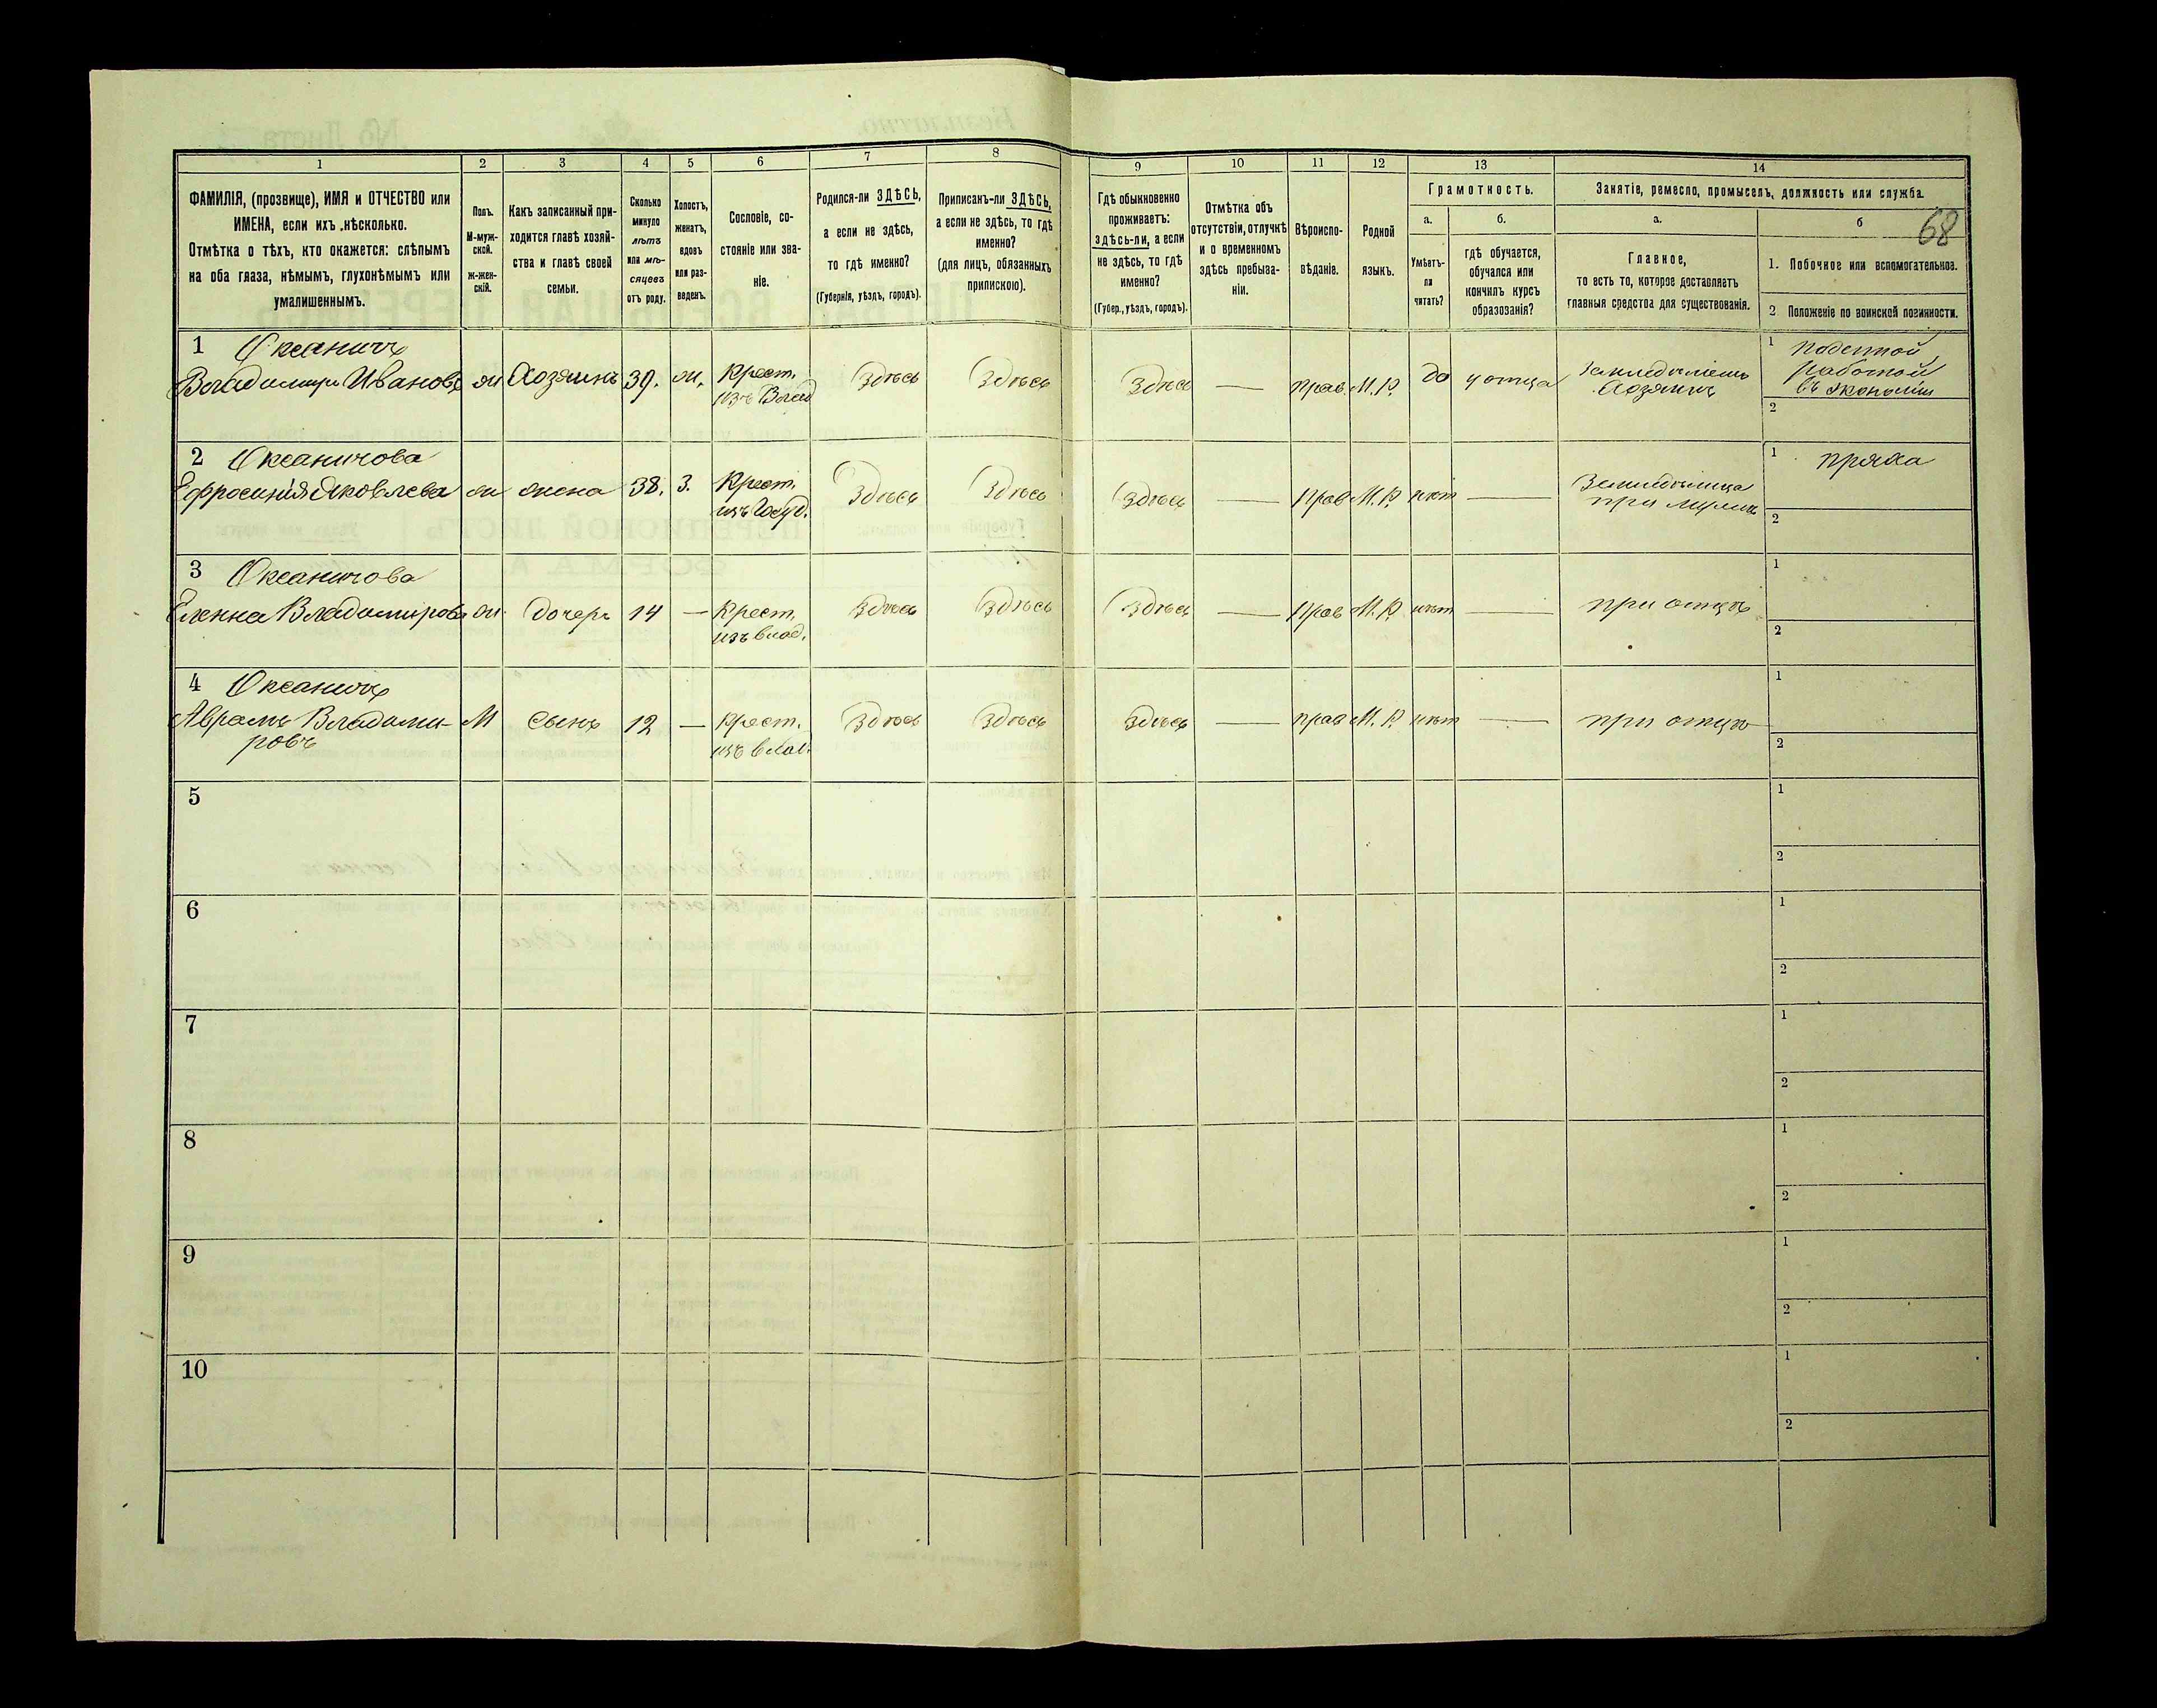 68
1 2 3 4 5 6 7 8 9 10 11 12 13 14
ФАМИЛІЯ, (прозвище), ИМЯ и ОТЧЕСТВО или
ИМЕНА, если ихъ нѣсколько.
Отмѣтка о тѣхъ, кто окажется: слѣпымъ
на оба глаза, нѣмымъ, глухонѣмымъ или
умалишеннымъ.
Полъ.
М-муж-
ской.
ж-жен-
скій.
Какъ записанный при-
ходится главѣ хозяй-
ства и главѣ своей
семьи.
Сколько
минуло
лѣтъ
или мѣ-
сяцевъ
отъ роду.
Холостъ,
женатъ,
вдовъ
или раз-
веденъ.
Сословіе, со-
стояніе или зва-
ніе.
Родился-ли ЗДѢСЬ,
а если не здѣсь,
то гдѣ именно?
(Губернія, уѣздъ, городъ).
Приписанъ-ли ЗДѢСЬ,
а если не здѣсь, то гдѣ
именно?
(для лицъ, обязанныхъ
припискою).
Гдѣ обыкновенно
проживаетъ:
здѣсь-ли, а если
не здѣсь, то гдѣ
именно?
(Губер., уѣздъ, городъ).
Отмѣтка объ
отсутствіи, отлучкѣ
и о временномъ
здѣсь пребыва-
ніи.
Вѣроиспо-
вѣданіе.
Родной
языкъ.
Грамотность.
а.
Умѣетъ-
ли
читать?
б.
гдѣ обучается,
обучался или
кончилъ курсъ
образованія?
Занятіе, ремесло, промыселъ, должность или служба.
а.
Главное,
то есть то, которое доставляетъ
главныя средства для существованія.
б
1. Побочное или вспомогательное.
2 Положеніе по воинской повинности.
1 Оксаничъ
Владимиръ Ивановъ м Хозяинъ 39. ж. Крест. Здѣсь Здѣсь Здѣсь — прав. М.Р. да у отца
изъ Влад
Земледѣлецъ
Хозяинъ
1 поденной
работой
въ экономіи
2
2 Оксаничова
Ефросинія Яковлева ж жена 38. З. Крест. Здѣсь Здѣсь Здѣсь — Прав М.Р. нѣт —
изъ Госуд.
Земледѣлица
при мужѣ
1 пряха
2
3 Оксаничова
Еленна Владимирова ж. дочерь 14 — Крест. Здѣсь Здѣсь Здѣсь — Прав М.Р. нѣт — при отцѣ
изъ влад.
1
2
4 Оксаничъ
Аврамъ Владими- М сынъ 12 — крест. Здѣсь Здѣсь Здѣсь — прав М.Р. нѣт — при отцѣ
ровъ
изъ влад.
1
2
5
1
2
6
1
2
7
1
2
8
1
2
9
1
2
10
1
2